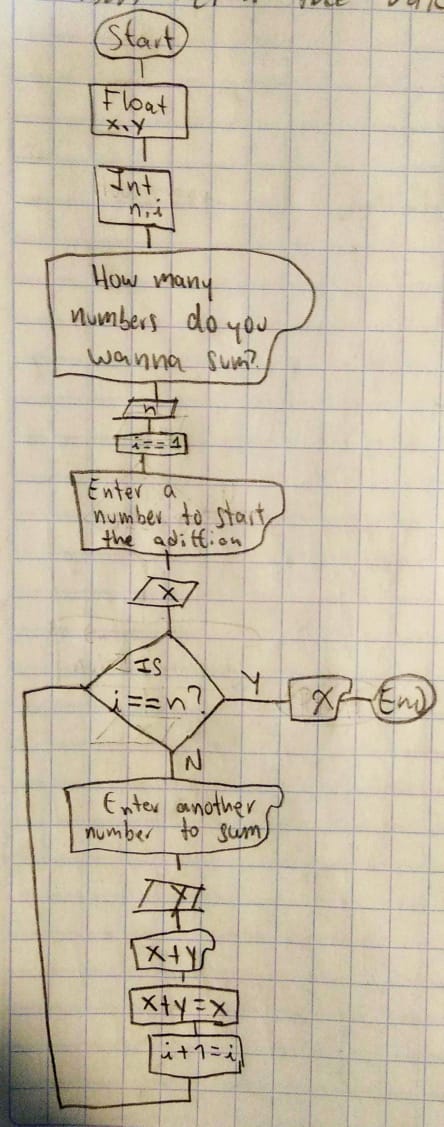 Start
Float
x, y
Int
n, i
How many
numbers do you
wanna sum?
n
i==1
Enter a
number to start
the adittion
X
Is
i==n?
Y
X
End
N
Enter another
number to sum
Y
x+y
x+y=x
i+1=i